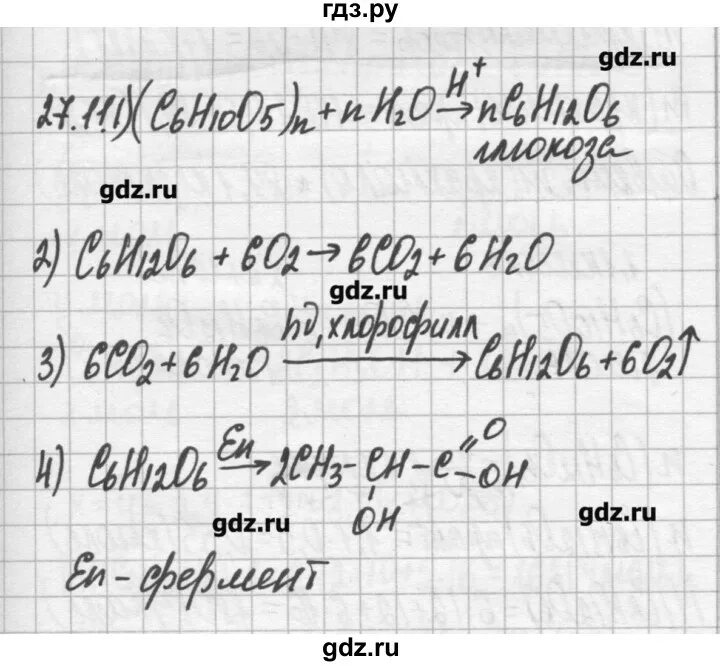 гдз.ру
gdz.ru
27.11 1) (C6H10O5)n + nH2O H⁺→ nC6H12O6
глюкоза
gdz.ru
2) C6H12O6 + 6O2 → 6CO2 + 6H2O
gdz.ru
hν, хлорофилл
3) 6CO2 + 6H2O → C6H12O6 + 6O2↑
4) C6H12O6 En→ 2CH3-CH-C=O
OH
OH
gdz.ru
gdz.ru
En - фермент
gdz.ru